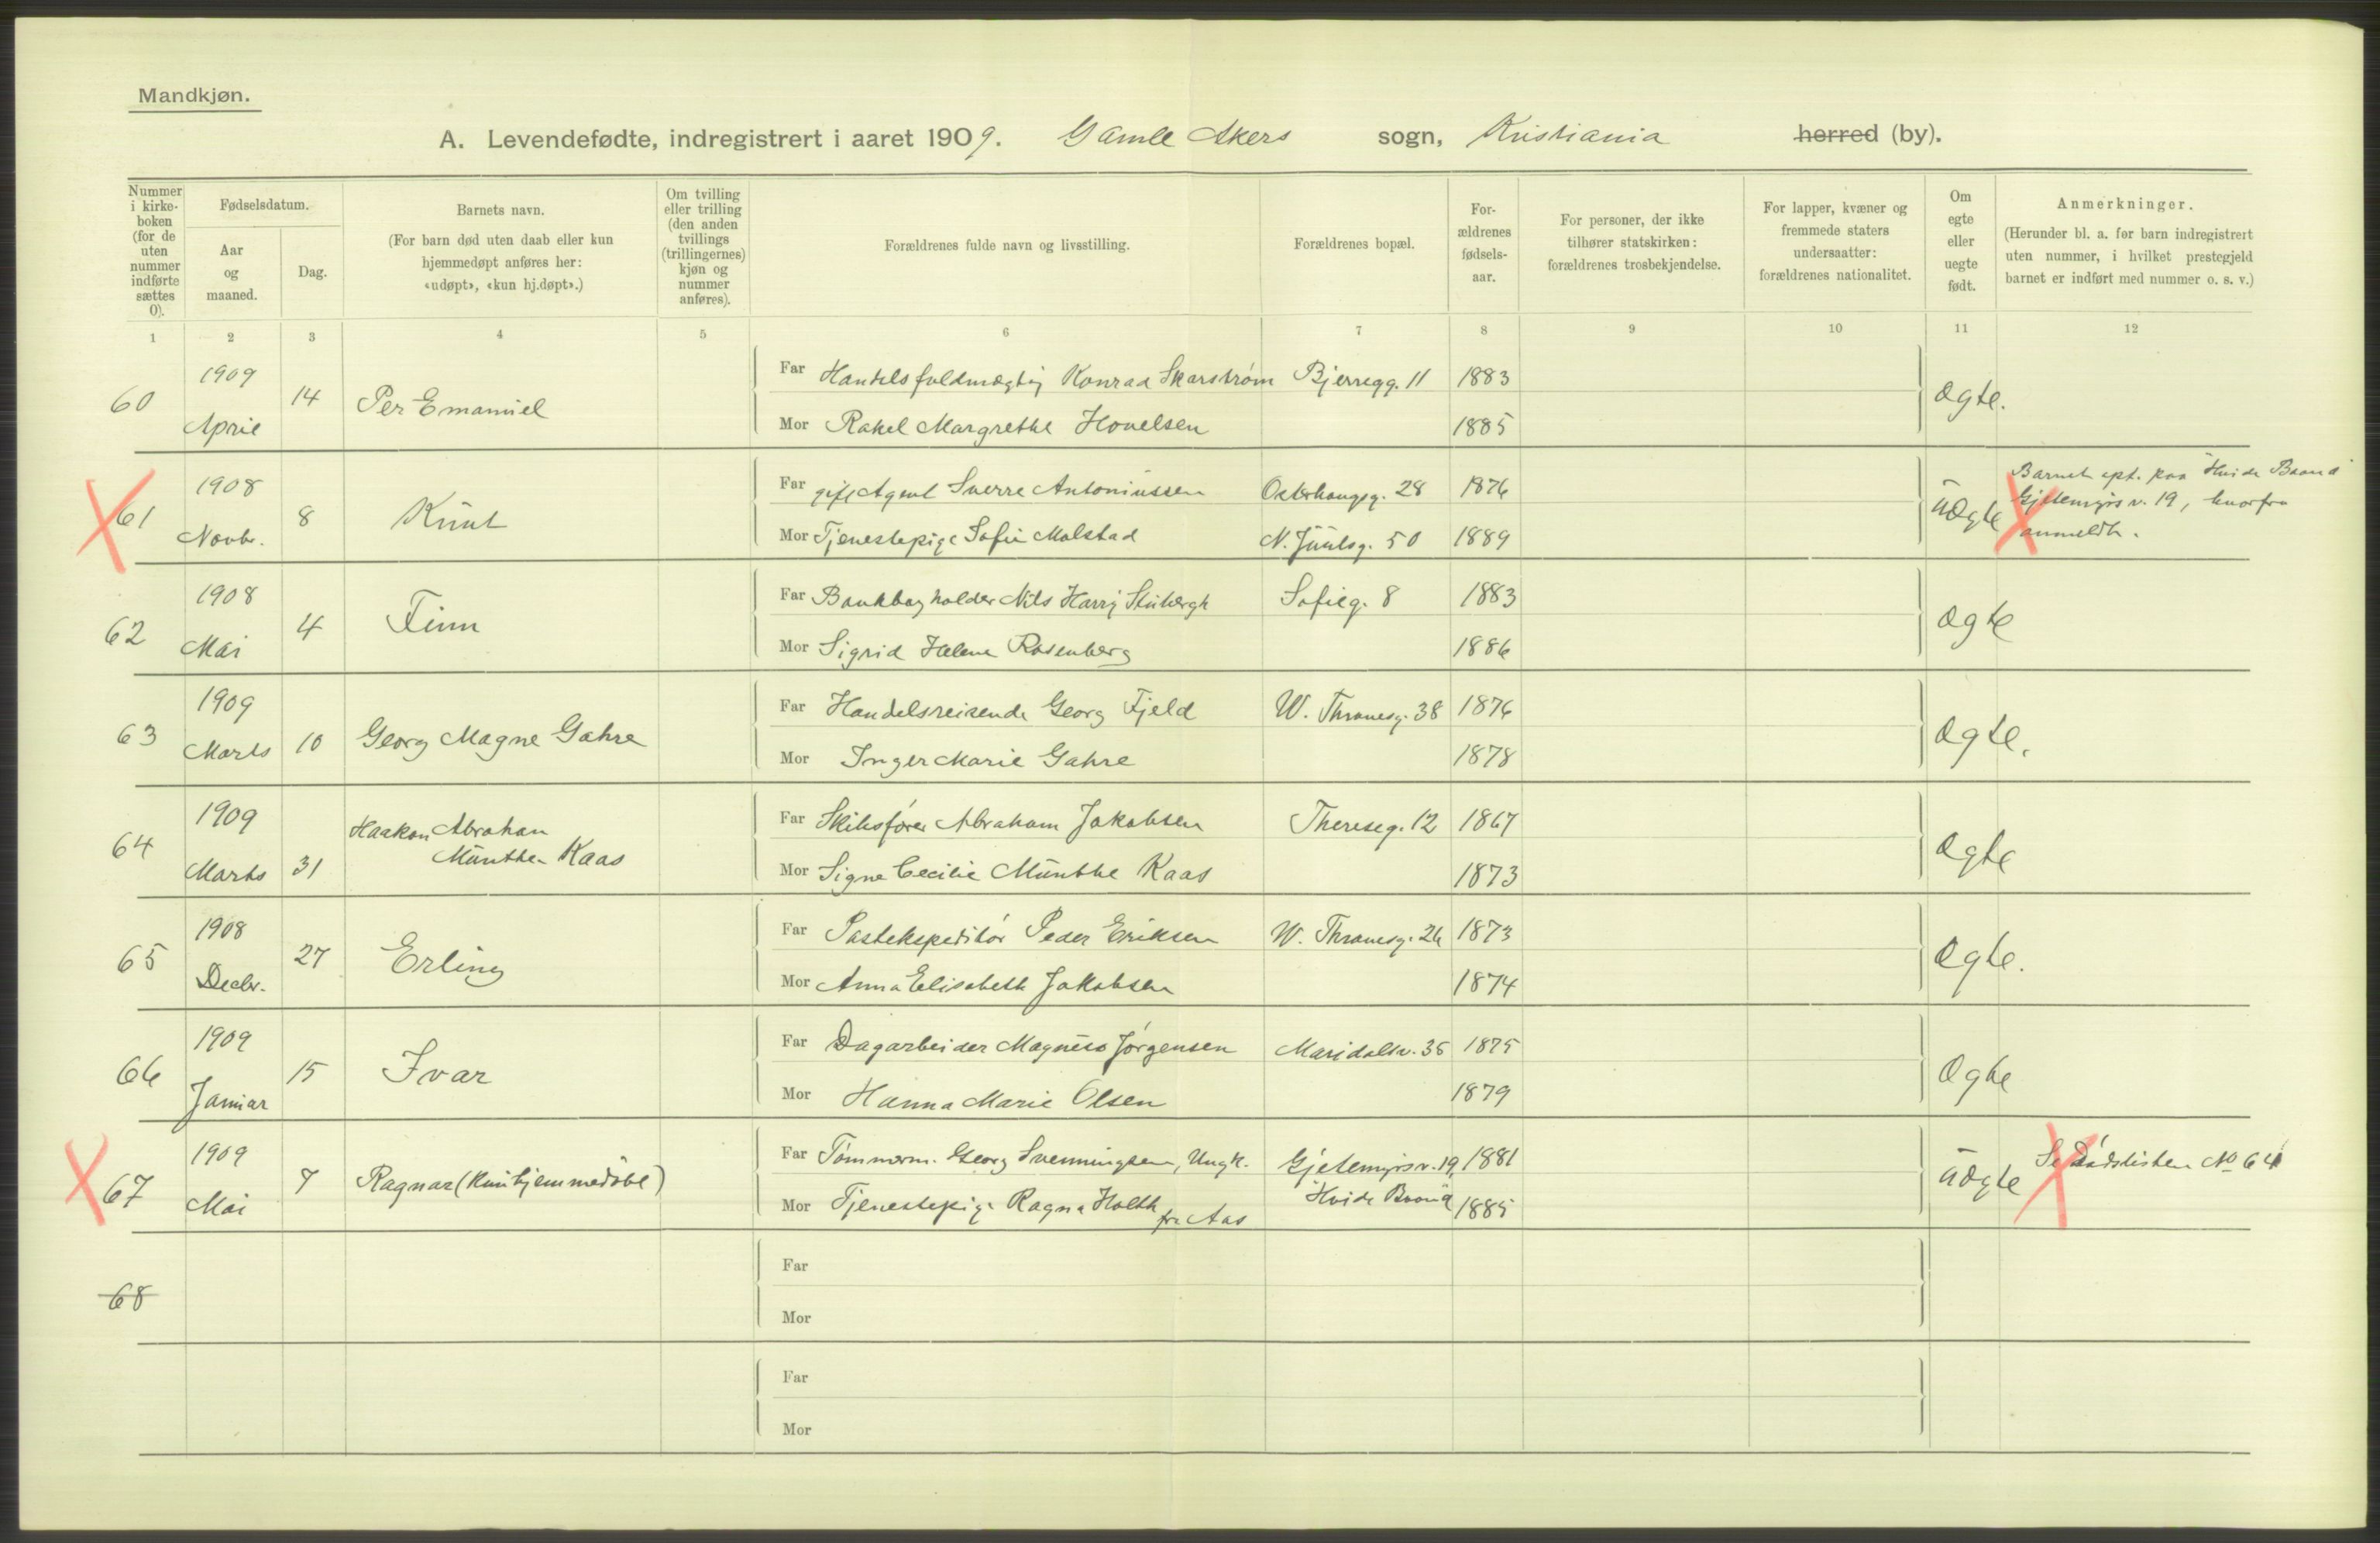 Mandkjøn.
A. Levendefødte, indregistrert i aaret 1909. Gamle Akers sogn, Kristiania herred (by).
Nummer i kirke-boken (for de uten nummer indførte sættes 0).
Fødselsdatum.
Aar og maaned.
Dag.
Barnets navn.
(For barn død uten daab eller kun hjemmedøpt anføres her: «udøpt», «kun hj.døpt».)
Om tvilling eller trilling (den anden tvillings (trillingernes) kjøn og nummer anføres).
Forældrenes fulde navn og livsstilling.
Forældrenes bopæl.
For-ældrenes fødsels-aar.
For personer, der ikke tilhører statskirken: forældrenes trosbekjendelse.
For lapper, kvæner og fremmede staters undersaatter: forældrenes nationalitet.
Om egte eller uegte født.
Anmerkninger.
(Herunder bl. a. for barn indregistrert uten nummer, i hvilket prestegjeld barnet er indført med nummer o. s. v.)
1 2 3 4 5 6 7 8 9 10 11 12
60 1909 April 14 Per Emanuel
Far Handelsfuldmægtig Konrad Skarstrøm Bjerregg. 11 1883 Ægte.
Mor Rakel Margrethe Hovelsen 1885
61 1908 Novbr. 8 Knut
Far gift Agent Sverre Antoniussen Osterhausg. 28 1876 Uægte
Mor Tjenestepige Sofie Molstad N. Juulsg. 50 1889
Barnet opt. paa "Hvide Baand"
Gjetemyrsv. 19, hvorfra
anmeldt.
62 1908 Mai 4 Finn
Far Bankbogholder Nils Harry Stubergh Sofieg. 8 1883 Ægte
Mor Sigrid Helene Rosenberg 1886
63 1909 Marts 10 Georg Magne Gahre
Far Handelsreisende Georg Fjeld W. Thranesg. 38 1876 Ægte.
Mor Inger Marie Gahre 1878
64 1909 Marts 31 Haakon Abraham
Munthe-Kaas
Far Skibsfører Abraham Jakobsen Thereseg. 12 1867 Ægte
Mor Signe Cecilie Munthe Kaas 1873
65 1908 Decbr. 27 Erling
Far Postekspeditør Peder Eriksen W. Thranesg. 26 1873 Ægte.
Mor Anna Elisabeth Jakobsen 1874
66 1909 Januar 15 Ivar
Far Dagarbeider Magnus Jørgensen Maridalsv. 35 1875 Ægte
Mor Hanna Marie Olsen 1879
67 1909 Mai 7 Ragnar (Kun hjemmedøbt)
Far Tømmerm. Georg Svenningsen, Ungk. Gjetemyrsv. 19, 1881 Uægte Se Dødslisten No 64
Mor Tjenestepige Ragna Holth fra Aas Hvide Baand 1885
68
Far
Mor
Far
Mor